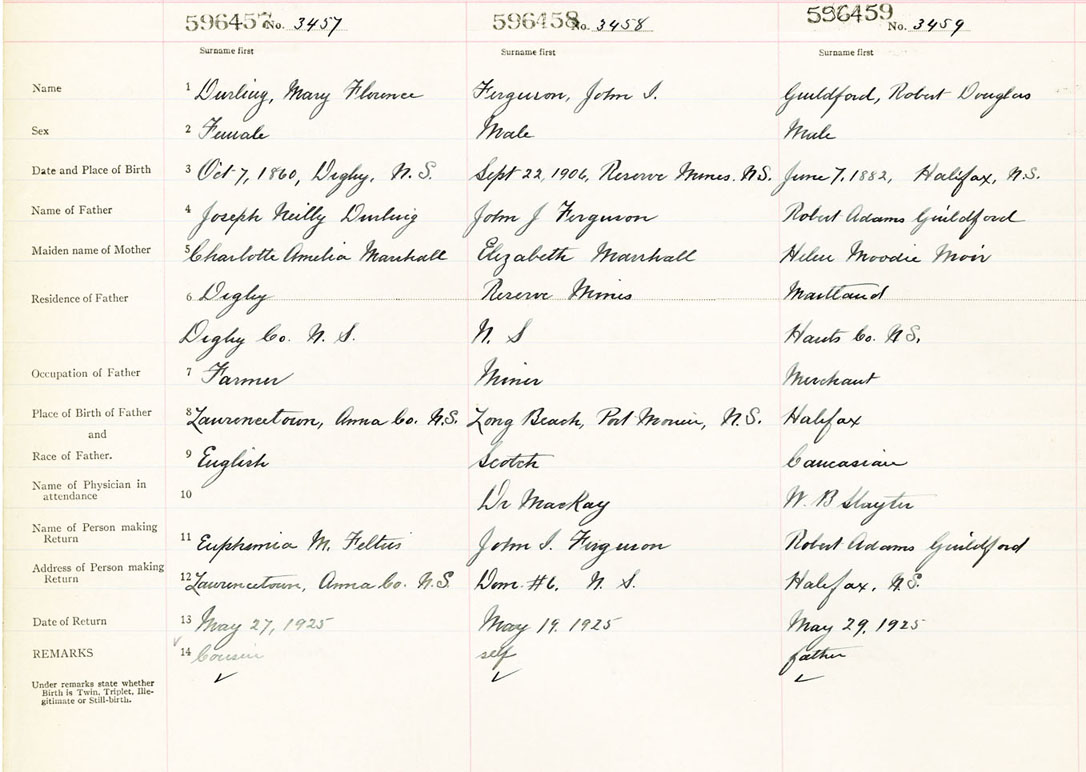 596457 No. 3457 596458 No. 3458 596459 No. 3459
Surname first Surname first Surname first
Name 1 Durling, Mary Florence Ferguson, John I. Guildford, Robert Douglas
Sex 2 Female Male Male
Date and Place of Birth 3 Oct 7, 1860, Digby, N.S. Sept 22, 1906, Reserve Mines. N.S. June 7, 1882, Halifax, N.S.
Name of Father 4 Joseph Neilly Durling John J Ferguson Robert Adams Guildford
Maiden name of Mother 5 Charlotte Amelia Marshall Elizabeth Marshall Helen Moodie Moir
Residence of Father 6 Digby Reserve Mines Maitland
Digby Co. N. S. N. S Hants Co. N.S.
Occupation of Father 7 Farmer Miner Merchant
Place of Birth of Father 8 Lawrencetown, Anna Co. N.S. Long Beach, Port Morien, N.S. Halifax
and
Race of Father. 9 English Scotch Caucasian
Name of Physician in
attendance 10 Dr MacKay W. B Slayter
Name of Person making
Return 11 Euphemia M. Feltus John I. Ferguson Robert Adams Guildford
Address of Person making
Return 12 Lawrencetown, Anna Co. N.S. Dom. #6, N. S. Halifax, N.S.
Date of Return 13 May 27, 1925 May 19, 1925 May 29, 1925
REMARKS 14 Cousin self father
Under remarks state whether
Birth is Twin, Triplet, Ille-
gitimate or Still-birth.